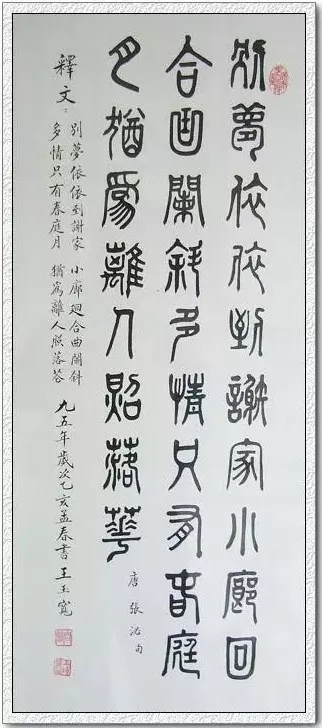 別夢依依到謝家小廊回
合曲闌斜多情只有春庭
月猶爲離人照落華
唐張泌句
釋文：
別夢依依到謝家 小廊廻合曲闌斜
多情只有春庭月 猶爲離人照落花
九五年歲次乙亥孟春書王玉寬